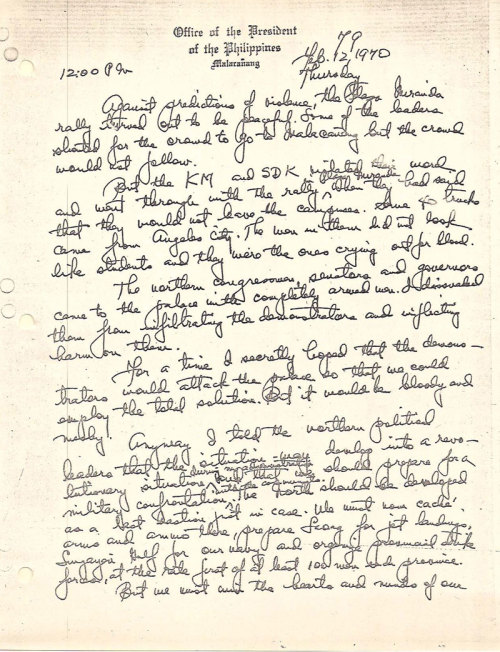 Office of the President
of the Philippines
Malacañang
79
Feb. 12, 1970
Thursday
12:00 PM
Against predictions of violence, the Plaza Miranda
rally turned out to be peaceful. Some of the leaders
shouted for the crowd to go to Malacañang but the crowd
would not follow.
But the KM and SDK violated their word
and went through with the rally in Plaza Miranda when they had said
that they would not leave the campuses. Some trucks
came from Angeles City. The men in them did not look
like students and they were the ones crying out for blood.
The northern congressmen, senators and governors
came to the palace with completely armed men. I dissuaded
them from infiltrating the demonstrators and inflicting
harm on them.
For a time I secretly hoped that the demons-
trators would attack the palace so that we could
employ the total solution. But it would be bloody and
messy.
Anyway I told the northern political
leaders that the situation may develop into a revo-
lutionary situation during my administration and that we should prepare for a
military confrontation with the communists. The North should be developed
as a last bastion just in case. We must now cache
arms and ammo there, prepare Laoag for jet landings,
Lingayen Gulf for our navy and organize
forces, at the rate first of at least 100 men each province.
But we must win the hearts and minds of our